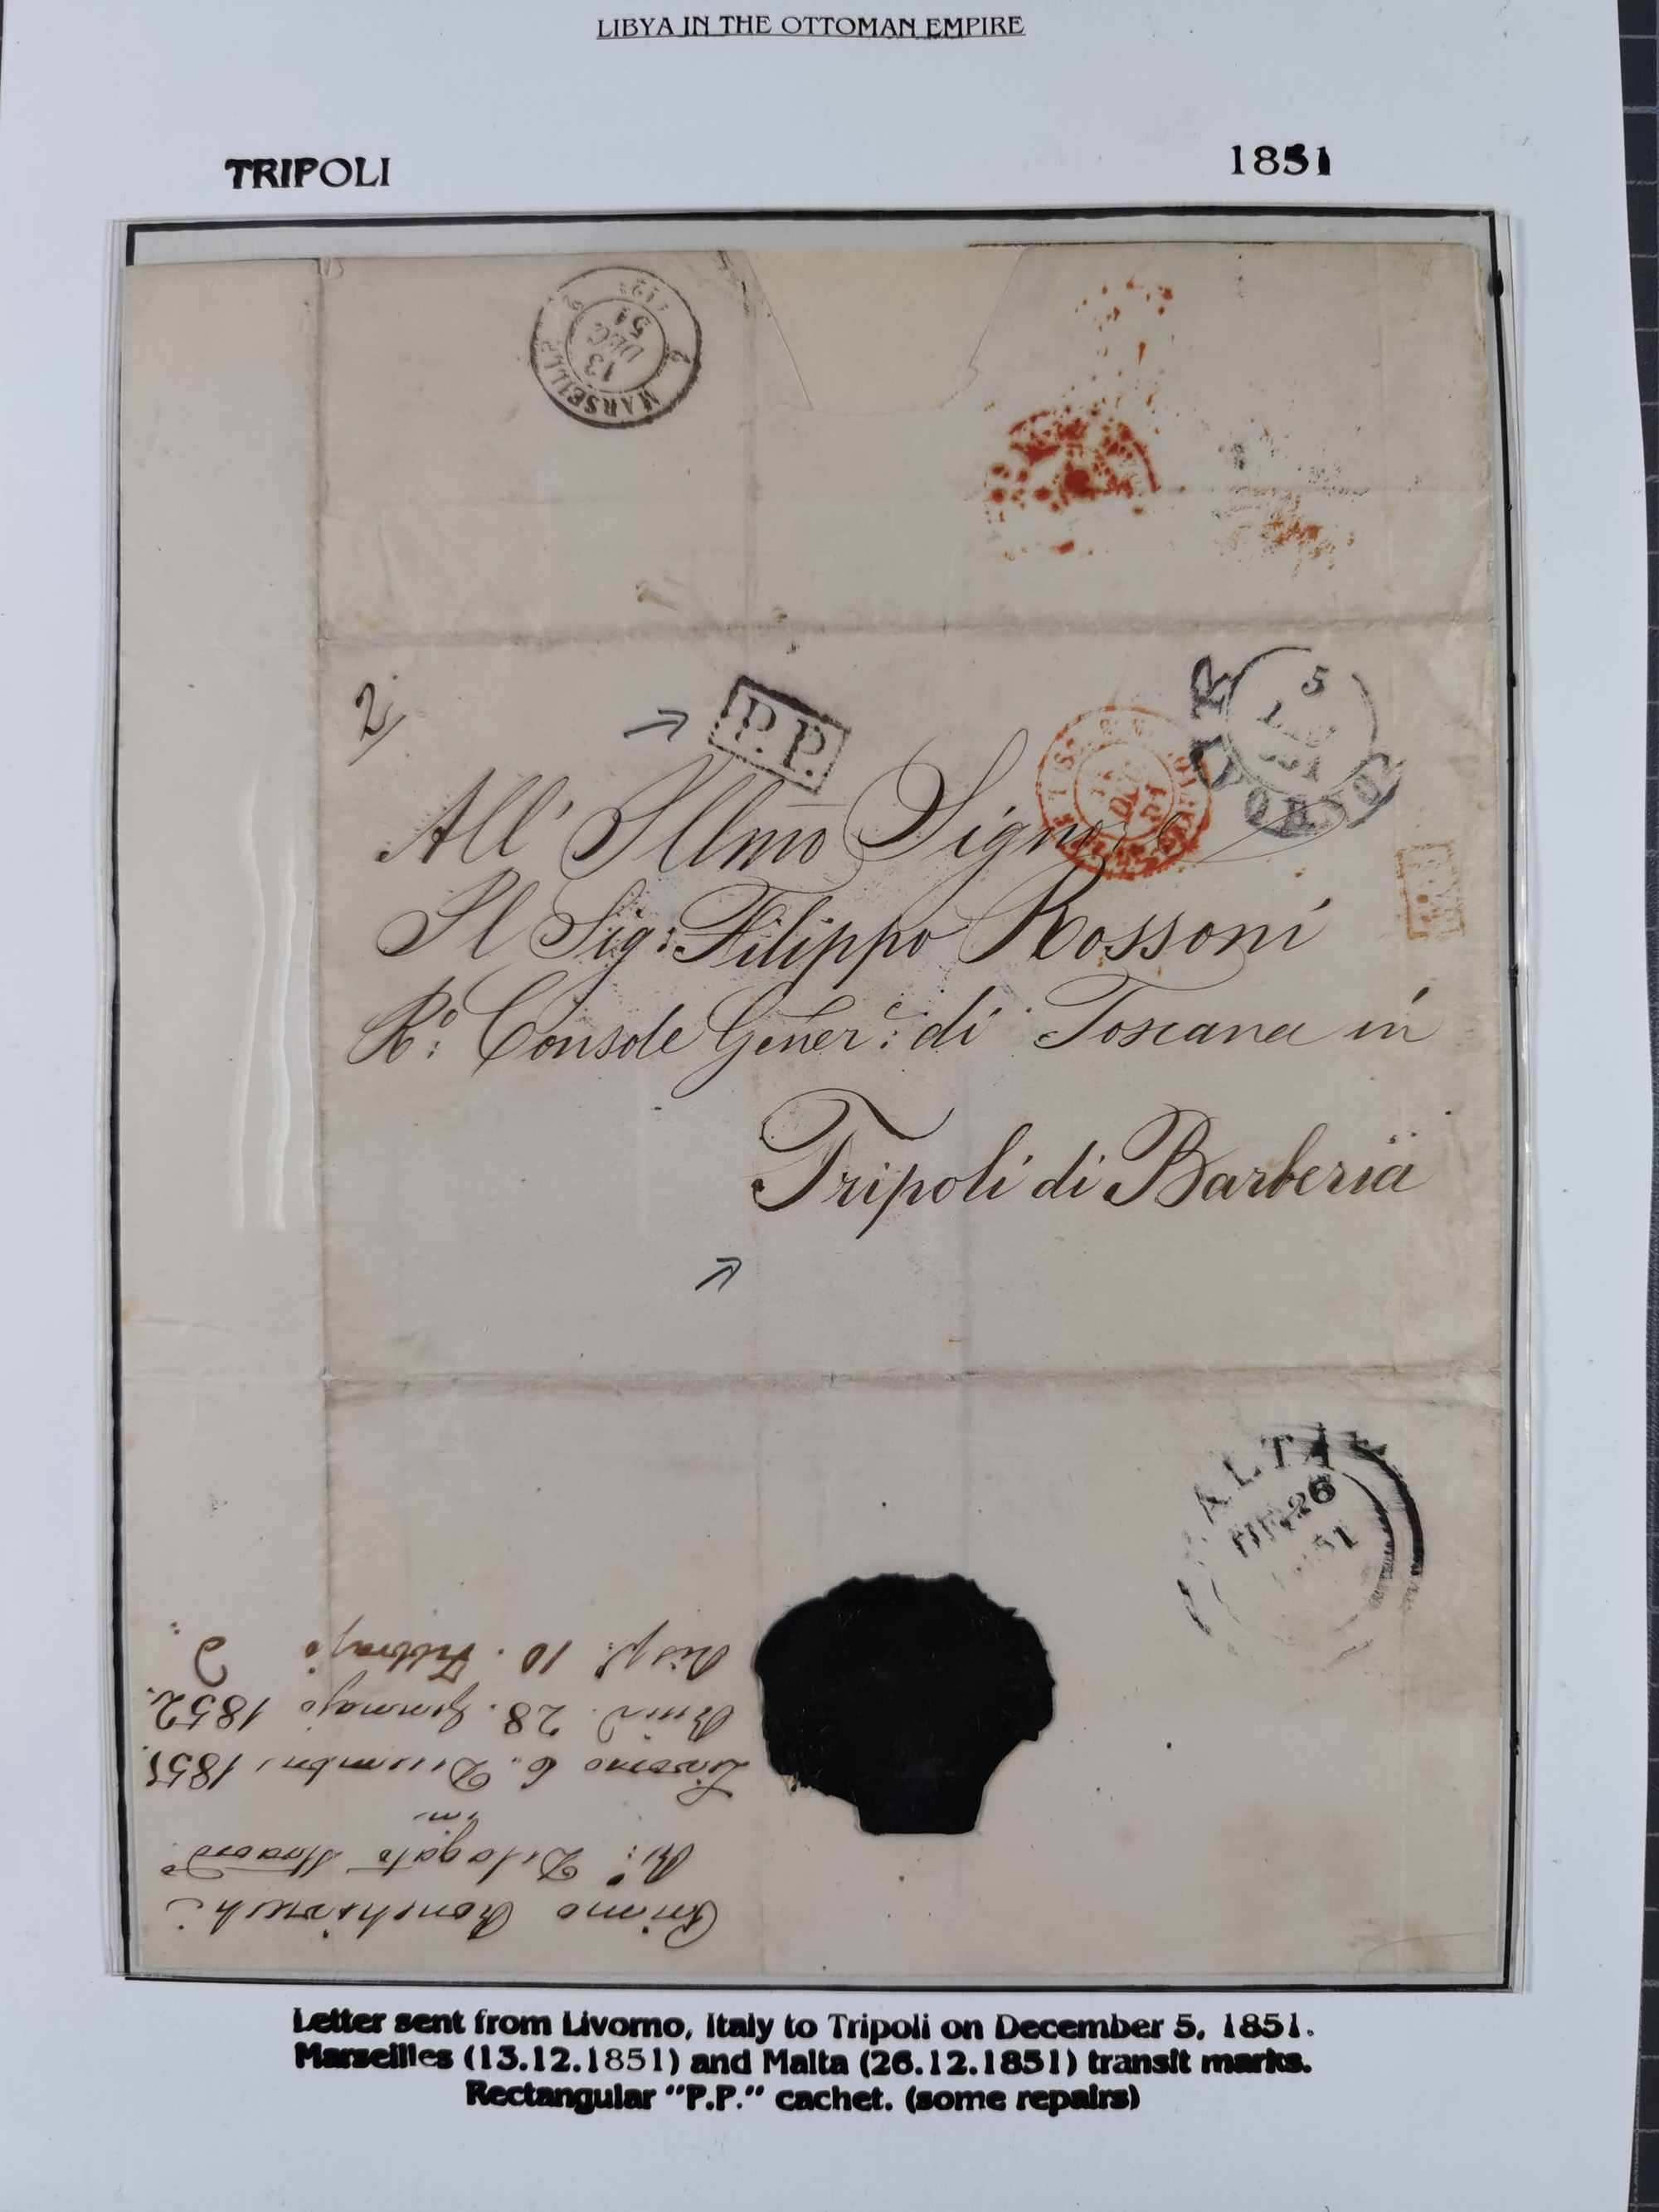 LIBYA IN THE OTTOMAN EMPIRE
TRIPOLI
1851
MARSEILLE
13
DEC
51
2
P.P.
5
LIVORNO
All' Illmo Signore
Il Sig: Filippo Rossoni
Ro: Console Gener.e: di Toscana in
Tripoli di Barberia
MALTA
26
51
Primo Ronchivecchi
Ro: Delegato Straord.o
in
Livorno 6. Dicembre 1851.
28. Gennajo 1852.
Risp. 10. Febbrajo
Letter sent from Livorno, Italy to Tripoli on December 5, 1851.
Marseilles (13.12.1851) and Malta (26.12.1851) transit marks.
Rectangular "P.P." cachet. (some repairs)